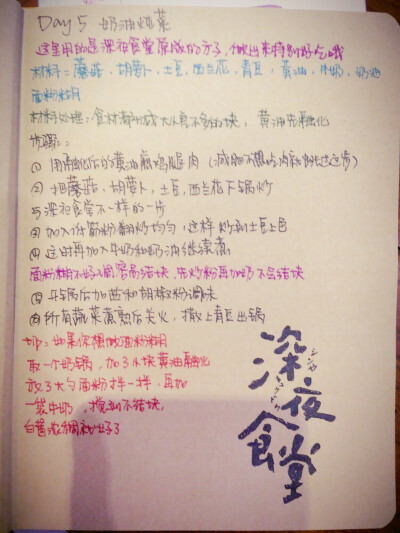 Day 5 奶油炖菜
这里用的是深夜食堂原版的方子，做出来特别好吃哦
材料：蘑菇、胡萝卜、土豆、西兰花、青豆、黄油、牛奶、奶油
面粉糊
材料处理：食材都切成大小差不多的块，黄油先融化
步骤：
① 用融化后的黄油煎鸡腿肉（减肥不想吃肉的跳过这步）
② 把蘑菇、胡萝卜、土豆、西兰花下锅炒
与深夜食堂不一样的一步
③ 加入低筋粉翻炒均匀，这样炒到土豆上色
④ 这时再加入牛奶和奶油继续煮
面粉糊不好调容易结块，先炒粉再加奶不会结块
⑤ 开锅后加盐和胡椒粉调味
⑥ 所有蔬菜煮熟后关火，撒上青豆出锅
如果你想做面粉糊
取一个奶锅，加了小块黄油融化
放了大勺面粉拌一拌，再加
一袋牛奶，搅到不结块，
白酱浓稠就好了
深夜食堂